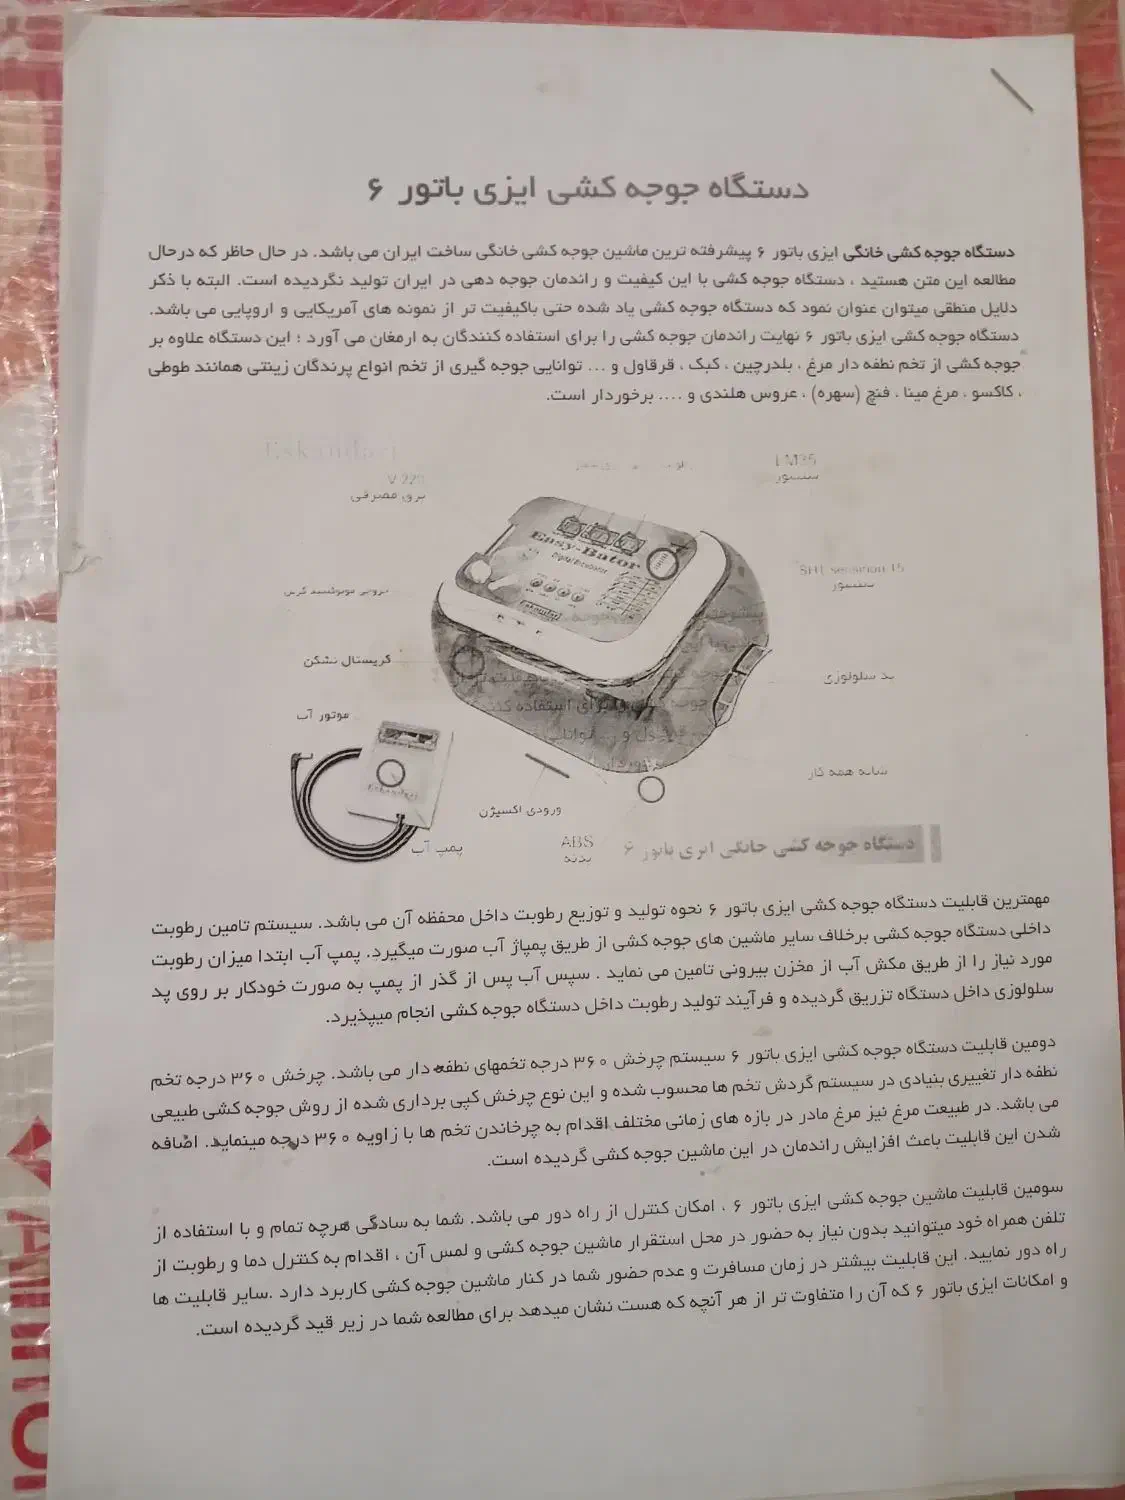 دستگاه جوجه کشی ایزی باتور ۶
دستگاه جوجه کشی خانگی ایزی باتور ۶ پیشرفته ترین ماشین جوجه کشی خانگی ساخت ایران می باشد. در حال حاظر که درحال
مطالعه این متن هستید ، دستگاه جوجه کشی با این کیفیت و راندمان جوجه دهی در ایران تولید نگردیده است. البته با ذکر
دلایل منطقی میتوان عنوان نمود که دستگاه جوجه کشی یاد شده حتی باکیفیت تر از نمونه های آمریکایی و اروپایی می باشد.
دستگاه جوجه کشی ایزی باتور ۶ نهایت راندمان جوجه کشی را برای استفاده کنندگان به ارمغان می آورد ؛ این دستگاه علاوه بر
جوجه کشی از تخم نطفه دار مرغ ، بلدرچین ، کبک ، قرقاول و ... توانایی جوجه گیری از تخم انواع پرندگان زینتی همانند طوطی
، کاکسو ، مرغ مینا ، فنچ (سهره) ، عروس هلندی و .... برخوردار است.
Eskandari
LM35
سنسور
V 220
برق مصرفی
Easy-Bator
Digital Incubator
Eskandari
SHT sensirion 15
سنسور
کریستال نشکن
پد سلولوزی
موتور آب
شانه همه کار
Eskandari
ورودی اکسیژن
پمپ آب
ABS
بدنه
دستگاه جوجه کشی خانگی ایزی باتور ۶
مهمترین قابلیت دستگاه جوجه کشی ایزی باتور ۶ نحوه تولید و توزیع رطوبت داخل محفظه آن می باشد. سیستم تامین رطوبت
داخلی دستگاه جوجه کشی برخلاف سایر ماشین های جوجه کشی از طریق پمپاژ آب صورت میگیرد. پمپ آب ابتدا میزان رطوبت
مورد نیاز را از طریق مکش آب از مخزن بیرونی تامین می نماید . سپس آب پس از گذر از پمپ به صورت خودکار بر روی پد
سلولوزی داخل دستگاه تزریق گردیده و فرآیند تولید رطوبت داخل دستگاه جوجه کشی انجام میپذیرد.
دومین قابلیت دستگاه جوجه کشی ایزی باتور ۶ سیستم چرخش ۳۶۰ درجه تخمهای نطفه دار می باشد. چرخش ۳۶۰ درجه تخم
نطفه دار تغییری بنیادی در سیستم گردش تخم ها محسوب شده و این نوع چرخش کپی برداری شده از روش جوجه کشی طبیعی
می باشد. در طبیعت مرغ نیز مرغ مادر در بازه های زمانی مختلف اقدام به چرخاندن تخم ها با زاویه ۳۶۰ درجه مینماید. اضافه
شدن این قابلیت باعث افزایش راندمان در این ماشین جوجه کشی گردیده است.
سومین قابلیت ماشین جوجه کشی ایزی باتور ۶ ، امکان کنترل از راه دور می باشد. شما به سادگی هرچه تمام و با استفاده از
تلفن همراه خود میتوانید بدون نیاز به حضور در محل استقرار ماشین جوجه کشی و لمس آن ، اقدام به کنترل دما و رطوبت از
راه دور نمایید. این قابلیت بیشتر در زمان مسافرت و عدم حضور شما در کنار ماشین جوجه کشی کاربرد دارد .سایر قابلیت ها
و امکانات ایزی باتور ۶ که آن را متفاوت تر از هر آنچه که هست نشان میدهد برای مطالعه شما در زیر قید گردیده است.